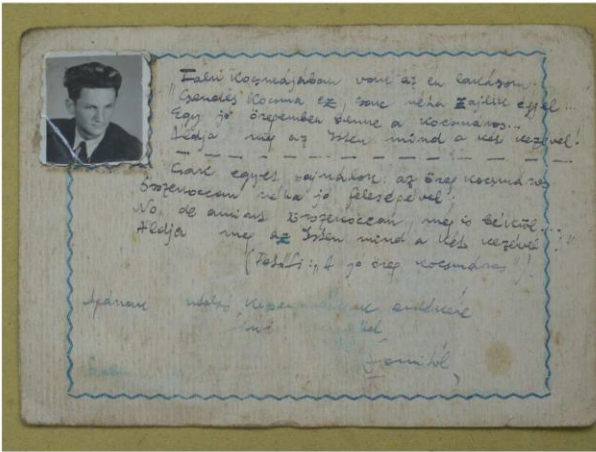 Falu kocsmájában van az én lakásom.
"Csendes kocsma ez, csak néha zajlik éjjel...
Egy jó öregember benne a kocsmáros...
Áldja meg az Isten mind a két kezével!
Csak egyet sajnálok: az öreg kocsmáros
Összekoccan néha jó feleségével;
No, de amint összekoccan, meg is békül...
Áldja meg az Isten mind a két kezével!"
(Petőfi: A jó öreg kocsmáros)!
Apámnak utolsó emlékére
Jancitól